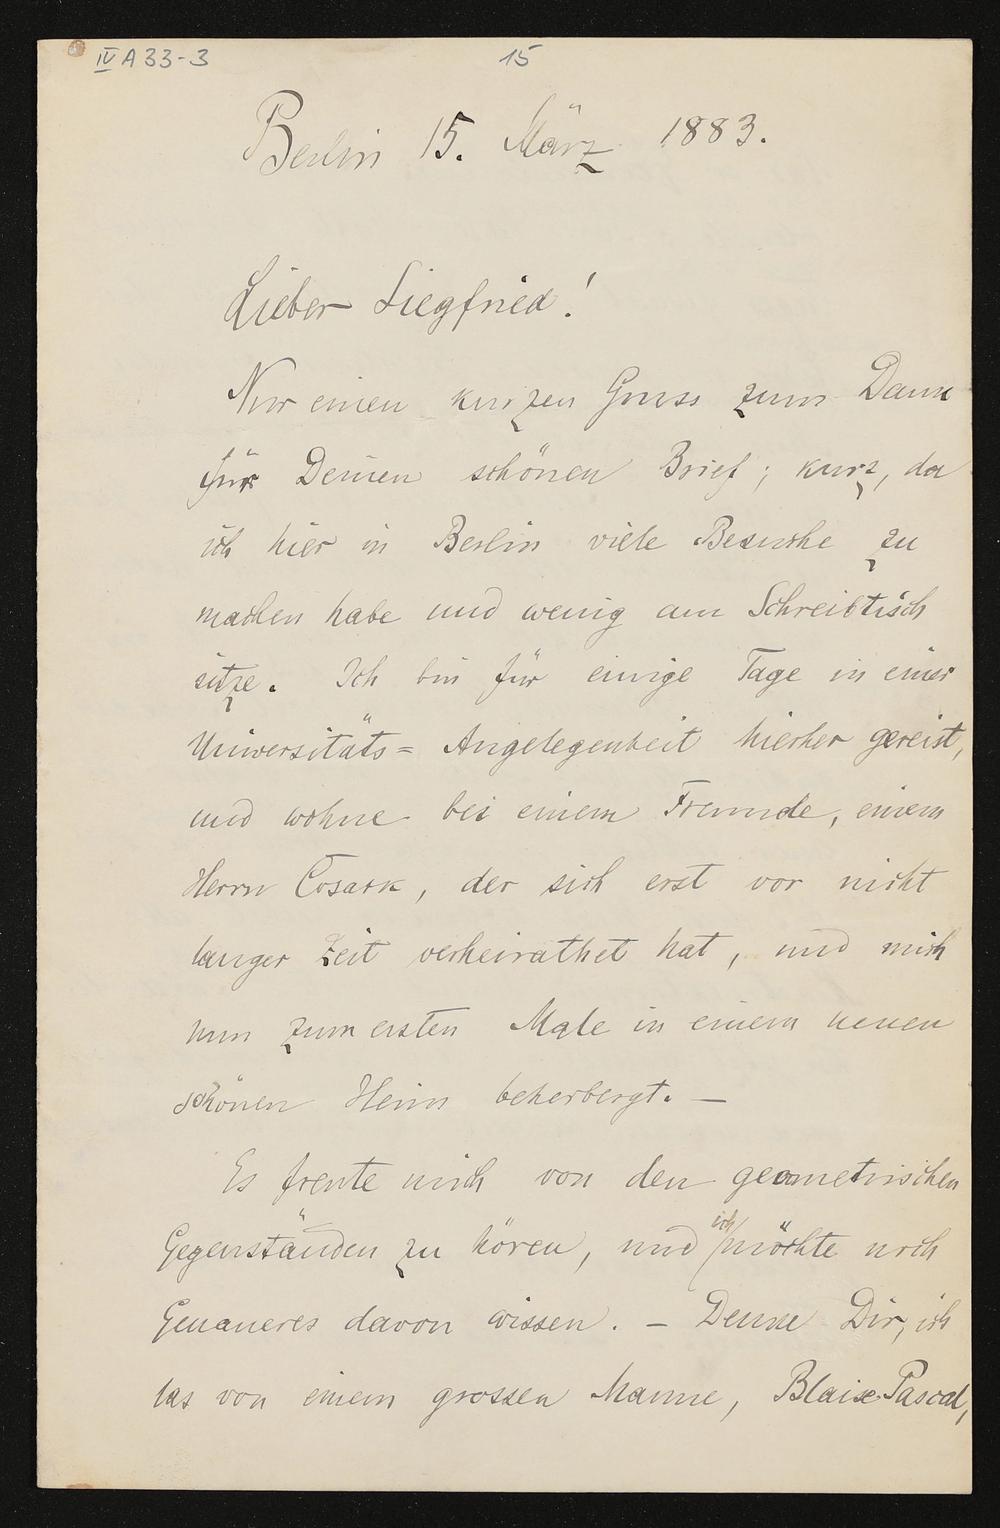 IV A 33-3
15
Berlin 15. März 1883.
Lieber Siegfried!
Nur einen kurzen Gruss zum Dank
für Deinen schönen Brief; kurz, da
ich hier in Berlin viele Besuche zu
machen habe und wenig am Schreibtisch
sitze. Ich bin für einige Tage in einer
Universitäts= Angelegenheit hierher gereist,
und wohne bei einem Freunde, einem
Herrn Cosack, der sich erst vor nicht
langer Zeit verheirathet hat, und mich
nun zum ersten Male in einem neuen
schönen Heim beherbergt. —
Es freute mich von den geometrischen
Gegenständen zu hören, und ich möchte noch
Genaueres davon wissen. — Denke Dir, ich
las von einem grossen Manne, Blaise Pascal,